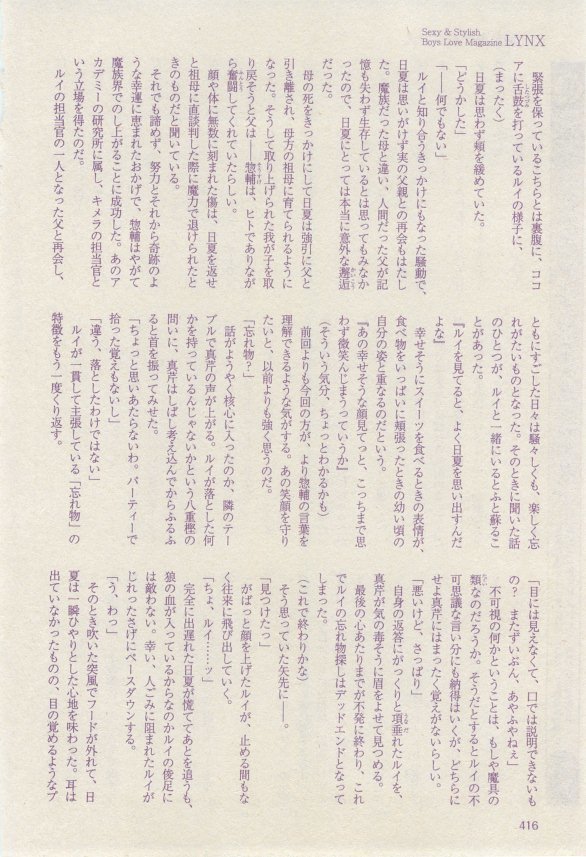 Sexy & Stylish
Boys Love Magazine LYNX
緊張を保っているこちらとは裏腹に、ココ
アに舌鼓を打っているルイの様子に、
(まったく)
日夏は思わず頬を緩めていた。
「どうかした」
「――何でもない」
ルイと知り合うきっかけにもなった騒動で、
日夏は思いがけず実の父親との再会もはたし
た。魔族だった母と違い、人間だった父が記
憶も失わず生存しているとは思ってもみなか
ったので、日夏にとっては本当に意外な邂逅
だった。
母の死をきっかけにして日夏は強引に父と
引き離され、母方の祖母に育てられるように
なった。そうして取り上げられた我が子を取
り戻そうと父は――惣輔は、ヒトでありなが
ら奮闘してくれていたらしい。
顔や体に無数に刻まれた傷は、日夏を返せ
と祖母に直談判した際に魔力で退けられたと
きのものだと聞いている。
それでも諦めず、努力とそれから奇跡のよ
うな幸運に恵まれたおかげで、惣輔はやがて
魔族界でのし上がることに成功した。あのア
カデミーの研究所に属し、キメラの担当官と
いう立場を得たのだ。
ルイの担当官の一人となった父と再会し、
ともにすごした日々は騒々しくも、楽しく忘
れがたいものとなった。そのときに聞いた話
のひとつが、ルイと一緒にいるとふと蘇るこ
とがあった。
『ルイを見てると、よく日夏を思い出すんだ
よな』
幸せそうにスイーツを食べるときの表情が、
食べ物をいっぱいに頬張ったときの幼い頃の
自分の姿と重なるのだという。
『あの幸せそうな顔見てっと、こっちまで思
わず微笑んじまうっていうか』
(そういう気分、ちょっとわかるかも)
前回よりも今回の方が、より惣輔の言葉を
理解できるような気がする。あの笑顔を守り
たいと、以前よりも強く思うのだ。
「忘れ物？」
話がようやく核心に入ったのか、隣のテー
ブルで真芹の声が上がる。ルイが落とした何
かを持っているんじゃないかという八重樫の
問いに、真芹はしばし考え込んでからふるふ
ると首を振ってみせた。
「ちょっと思いあたらないわ。パーティーで
拾った覚えもないし」
「違う、落としたわけではない」
ルイが一貫して主張している「忘れ物」の
特徴をもう一度くり返す。
「目には見えなくて、口では説明できないも
の？　またずいぶん、あやふやねぇ」
不可視の何かということは、もしや魔具の
類なのだろうか。そうだとするとルイの不
可思議な言い分にも納得はいくが、どちらに
せよ真芹にはまったく覚えがないらしい。
「悪いけど、さっぱり」
自身の返答にがっくりと項垂れたルイを、
真芹が気の毒そうに眉をよせて見つめる。
最後の心あたりまでが不発に終わり、これ
でルイの忘れ物探しはデッドエンドとなって
しまった。
(これで終わりかな)
そう思っていた矢先に――。
「見つけたっ」
がばっと顔を上げたルイが、止める間もな
く往来に飛び出していく。
「ちょ、ルイ……ッ」
完全に出遅れた日夏が慌ててあとを追うも、
狼の血が入っているからなのかルイの俊足に
は敵わない。幸い、人ごみに阻まれたルイが
じれったさげにペースダウンする。
「う、わっ」
そのとき吹いた突風でフードが外れて、日
夏は一瞬ひやりとした心地を味わった。耳は
出ていなかったものの、目の覚めるようなプ
416